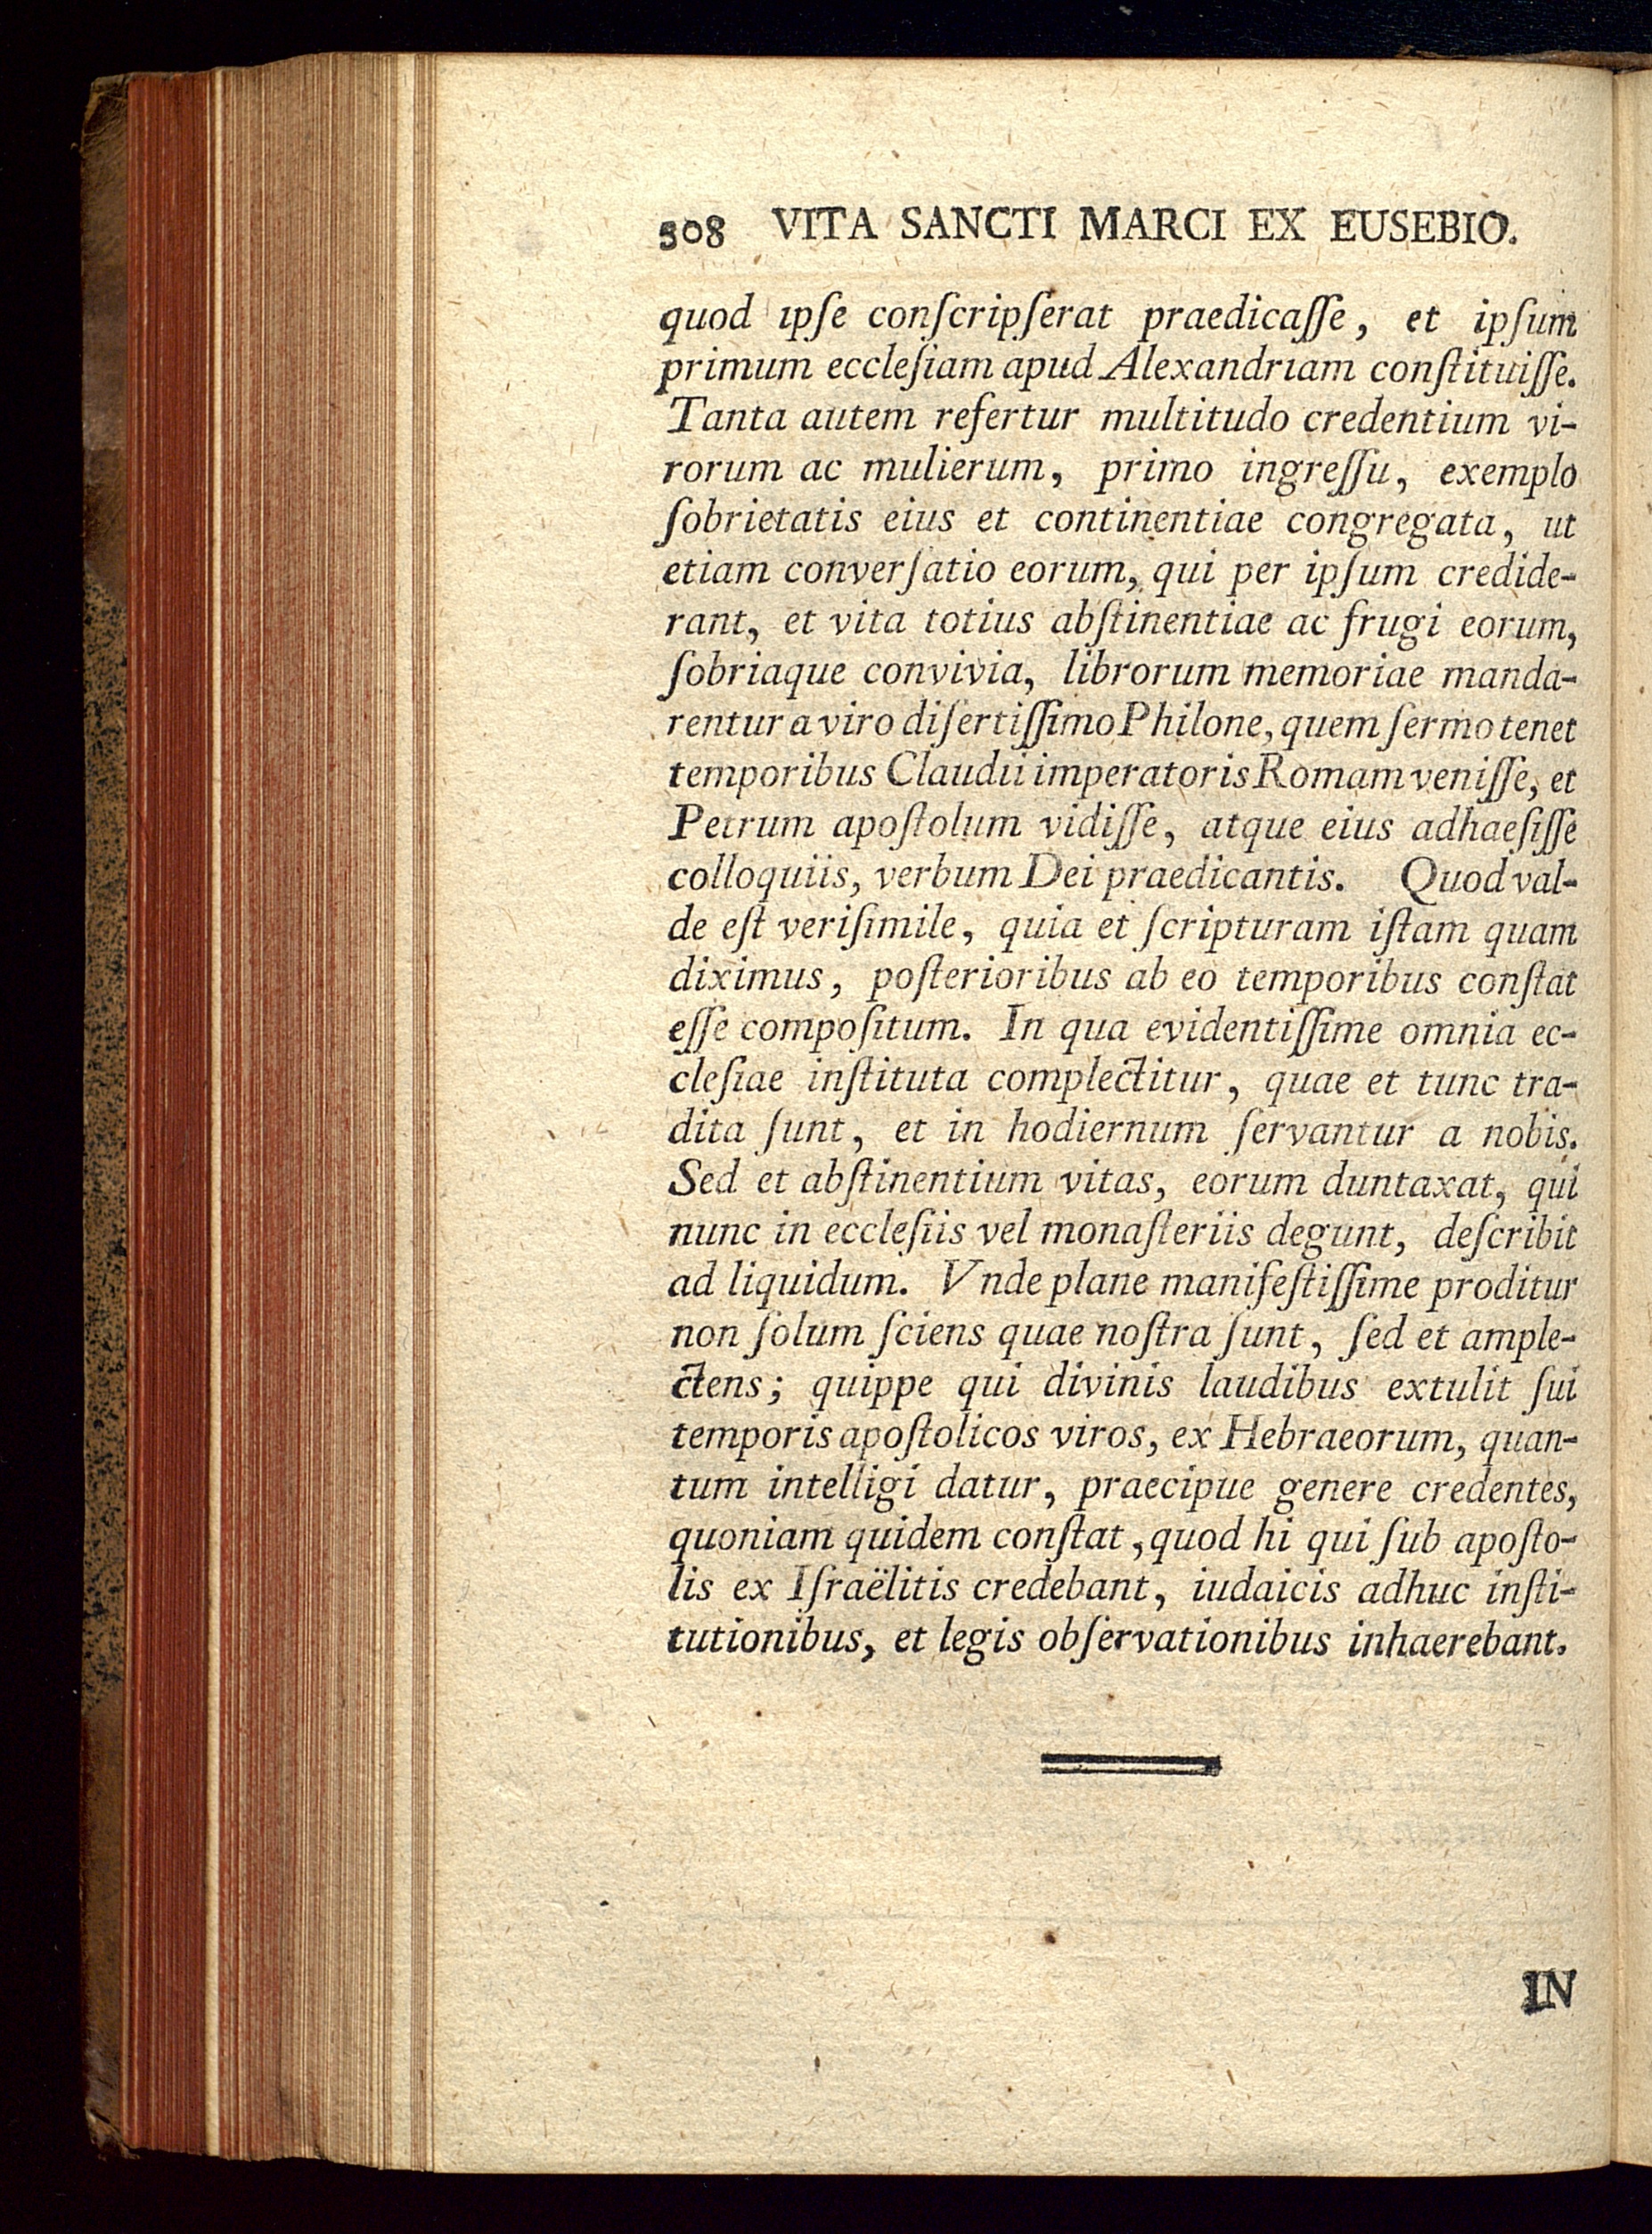 508 VITA SANCTI MARCI EX EUSEBIO.
quod ipſe conſcripſerat praedicaſſe, et ipſum
primum eccleſiam apud Alexandriam conſtituiſſe.
Tanta autem refertur multitudo credentium vi-
rorum ac mulierum, primo ingreſſu, exemplo
ſobrietatis eius et continentiae congregata, ut
etiam converſatio eorum, qui per ipſum credide-
rant, et vita totius abſtinentiae ac frugi eorum,
ſobriaque convivia, librorum memoriae manda-
rentur a viro diſertiſſimo Philone, quem ſermo tenet
temporibus Claudii imperatoris Romam veniſſe, et
Petrum apoſtolum vidiſſe, atque eius adhaeſiſſe
colloquiis, verbum Dei praedicantis. Quod val-
de eſt veriſimile, quia et ſcripturam iſtam quam
diximus, poſterioribus ab eo temporibus conſtat
eſſe compoſitum. In qua evidentiſſime omnia ec-
cleſiae inſtituta complectitur, quae et tunc tra-
dita ſunt, et in hodiernum ſervantur a nobis.
Sed et abſtinentium vitas, eorum duntaxat, qui
nunc in eccleſiis vel monaſteriis degunt, deſcribit
ad liquidum. Vnde plane manifeſtiſſime proditur
non ſolum ſciens quae noſtra ſunt, ſed et ample-
ctens; quippe qui divinis laudibus extulit ſui
temporis apoſtolicos viros, ex Hebraeorum, quan-
tum intelligi datur, praecipue genere credentes,
quoniam quidem conſtat, quod hi qui ſub apoſto-
lis ex Iſraëlitis credebant, iudaicis adhuc inſti-
tutionibus, et legis obſervationibus inhaerebant.
IN